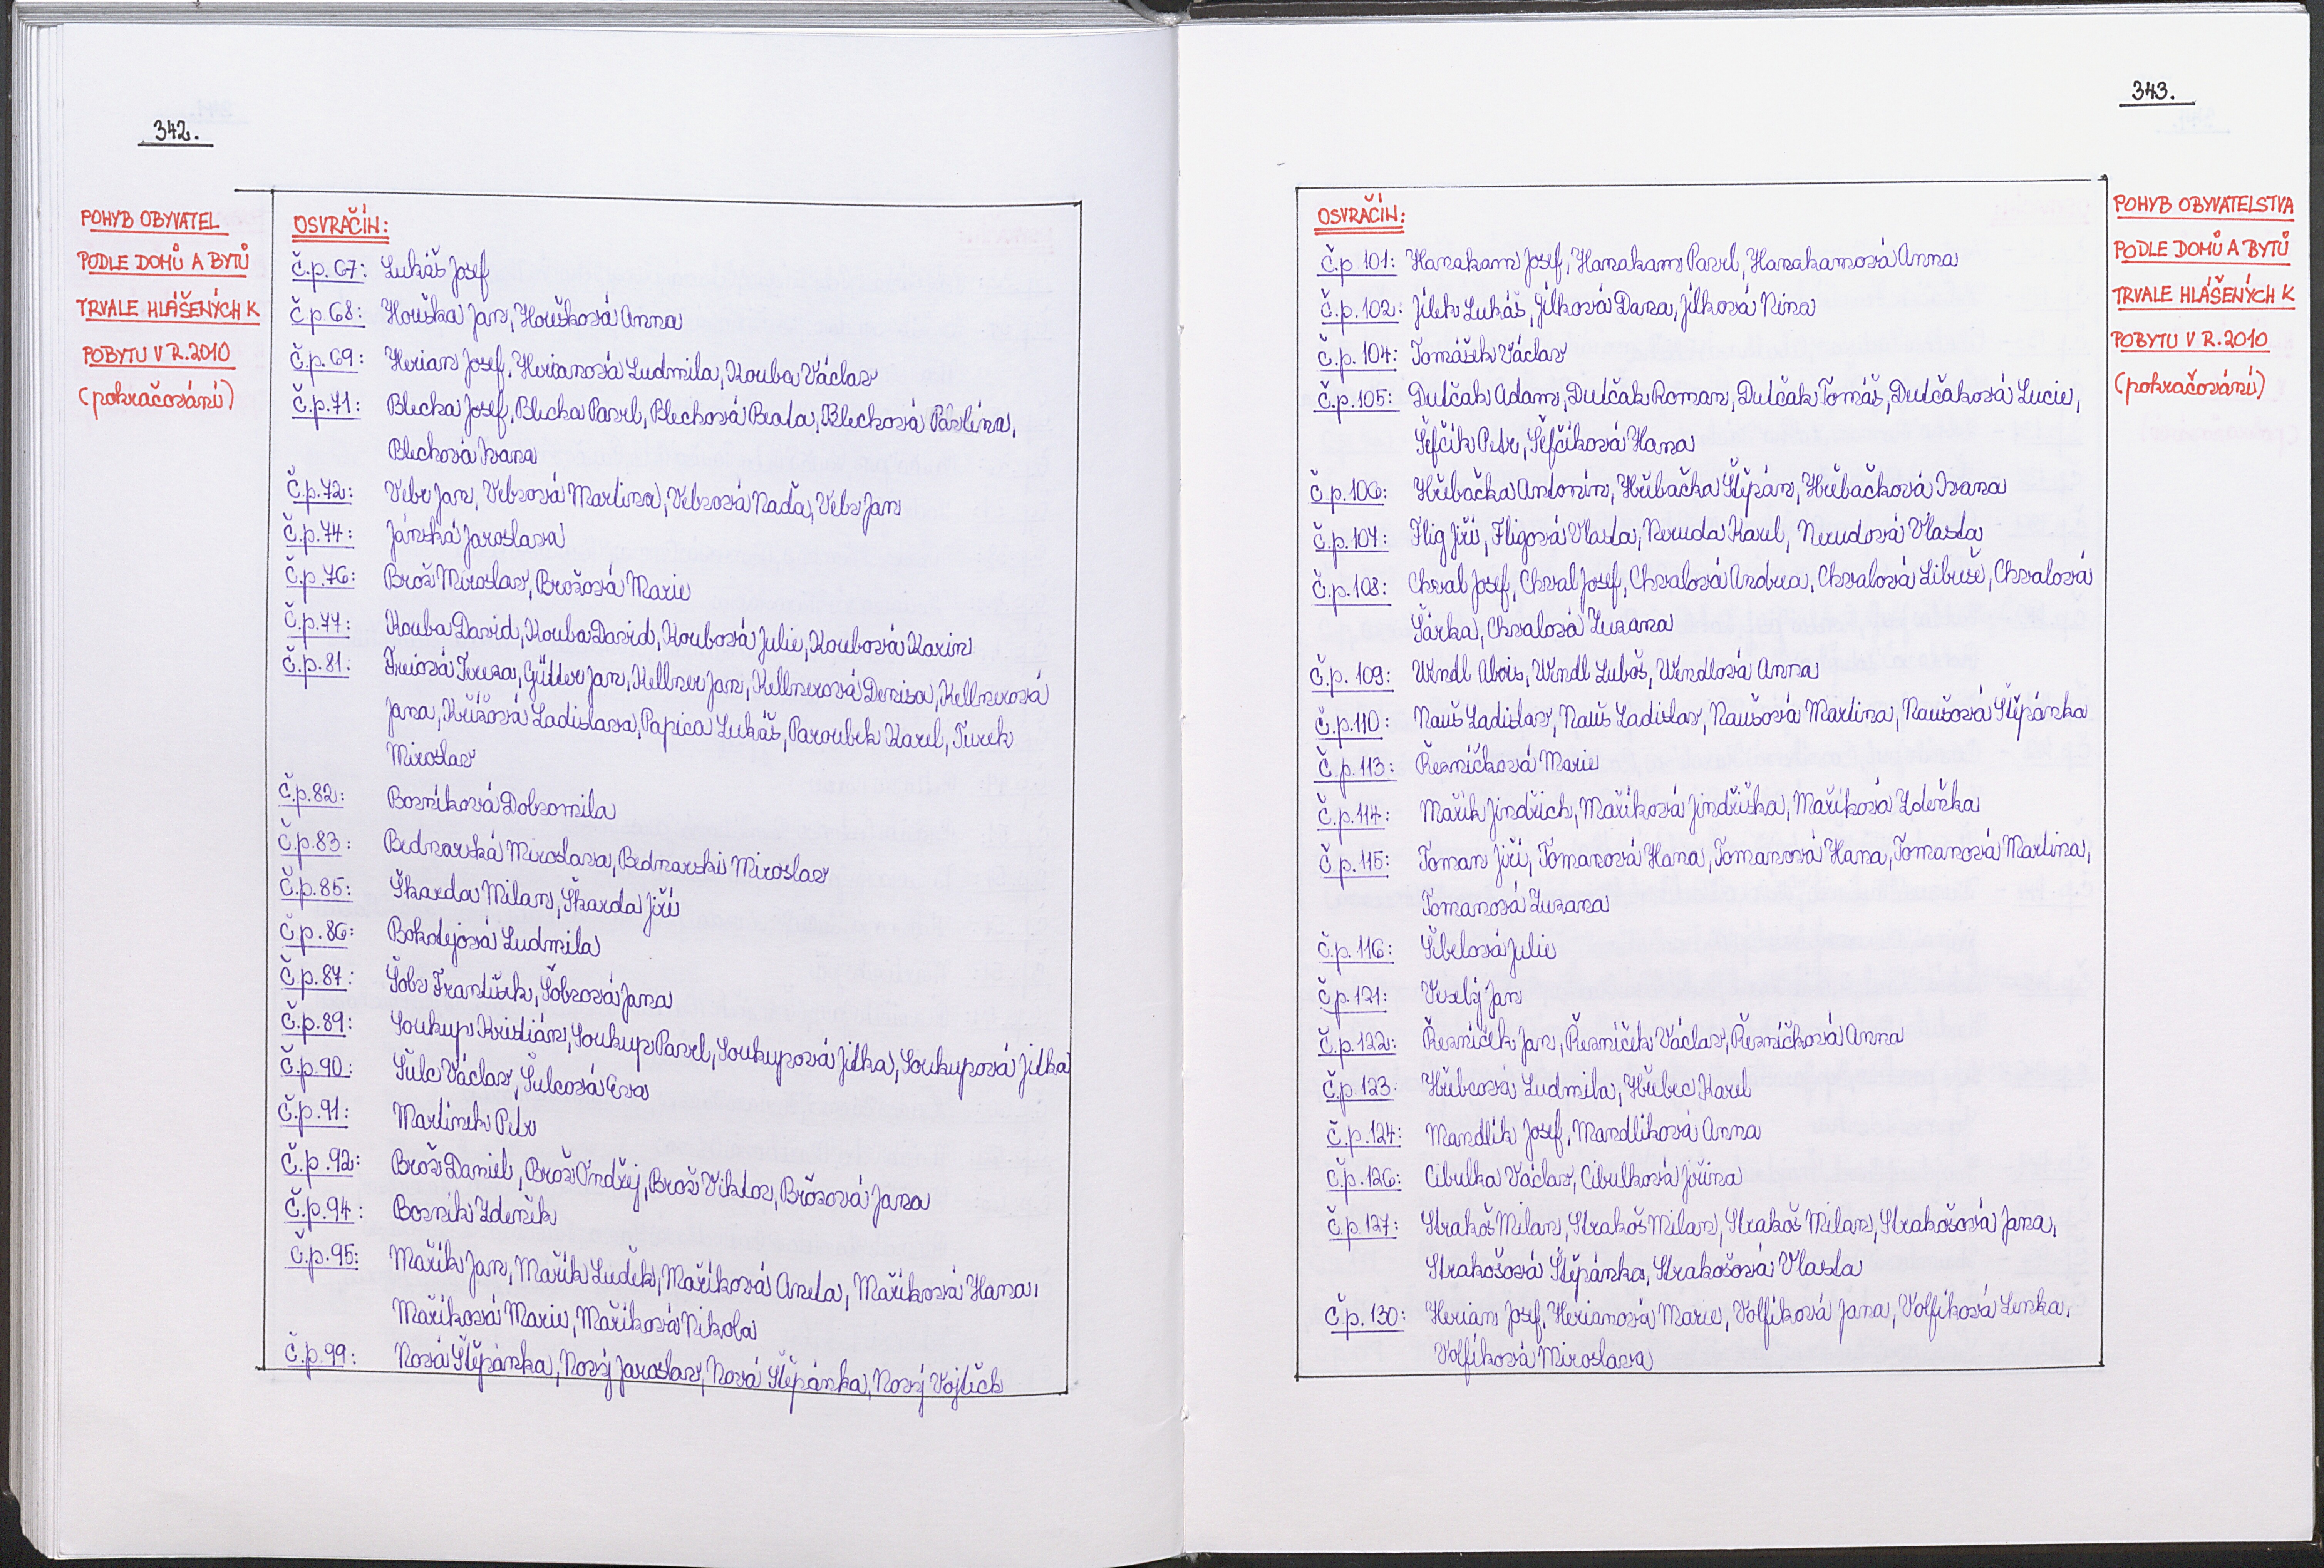 342.
POHYB OBYVATEL
PODLE DOMŮ A BYTŮ
TRVALE HLÁŠENÝCH K
POBYTU V R. 2010
(pokračování)
OSVRAČÍN:
č.p. 67: Lukáš Josef
č.p. 68: Houška Jan, Houšková Anna
č.p. 69: Herian Josef, Herianová Ludmila, Kouba Václav
č.p. 71: Blecha Josef, Blecha Pavel, Blechová Beata, Blechová Pavlína,
Blechová Ivana
č.p. 72: Vebr Jan, Vebrová Martina, Vebrová Naďa, Vebr Jan
č.p. 74: Jánská Jaroslava
č.p. 76: Brož Miroslav, Brožová Marie
č.p. 77: Kouba David, Kouba David, Koubová Julie, Koubová Karin
č.p. 81: Freiová Tereza, Gütter Jan, Kellner Jan, Kellnerová Denisa, Kellnerová
Jana, Křížová Ladislava, Papica Lukáš, Paroubek Karel, Turek
Miroslav
č.p. 82: Bosníková Dobromila
č.p. 83: Bednarská Miroslava, Bednarski Miroslav
č.p. 85: Škarda Milan, Škarda Jiří
č.p. 86: Bokolejová Ludmila
č.p. 87: Šobr František, Šobrová Jana
č.p. 89: Soukup Kristián, Soukup Pavel, Soukupová Jitka, Soukupová Jitka
č.p. 90: Šulc Václav, Šulcová Eva
č.p. 91: Martinek Petr
č.p. 92: Brož Daniel, Brož Ondřej, Brož Viktor, Brožová Jana
č.p. 94: Bosnik Zdeněk
č.p. 95: Mařík Jan, Mařík Luděk, Maříková Aneta, Maříková Hana,
Maříková Marie, Maříková Nikola
č.p. 99: Nová Štěpánka, Nový Jaroslav, Nová Štěpánka, Nový Vojtěch
343.
OSVRAČÍN:
č.p. 101: Hanakam Josef, Hanakam Pavel, Hanakamová Anna
č.p. 102: Jílek Lukáš, Jílková Dana, Jílková Nina
č.p. 104: Tomášek Václav
č.p. 105: Dutčák Adam, Dutčak Roman, Dutčak Tomáš, Dutčáková Lucie,
Šefčík Petr, Šefčíková Hana
č.p. 106: Hřebačka Antonín, Hřebačka Štěpán, Hřebačková Ivana
č.p. 107: Flig Jiří, Fligová Vlasta, Neruda Karel, Nerudová Vlasta
č.p. 108: Chval Josef, Chval Josef, Chvalová Andrea, Chvalová Libuše, Chvalová
Šárka, Chvalová Zuzana
č.p. 109: Wendl Alois, Wendl Luboš, Wendlová Anna
č.p. 110: Nauš Ladislav, Nauš Ladislav, Naušová Martina, Naušová Štěpánka
č.p. 113: Řezníčková Marie
č.p. 114: Mařík Jindřich, Maříková Jindřiška, Maříková Zdeňka
č.p. 115: Toman Jiří, Tomanová Hana, Tomanová Hana, Tomanová Martina,
Tomanová Zuzana
č.p. 116: Šibelová Julie
č.p. 121: Veselý Jan
č.p. 122: Řezníček Jan, Řezníček Václav, Řezníčková Anna
č.p. 123: Hřebcová Ludmila, Hřebec Karel
č.p. 124: Mandlík Josef, Mandlíková Anna
č.p. 126: Cibulka Václav, Cibulková Jiřina
č.p. 127: Strakoš Milan, Strakoš Milan, Strakoš Milan, Strakošová Jana,
Strakošová Štěpánka, Strakošová Vlasta
č.p. 130: Herian Josef, Herianová Marie, Volfíková Jana, Volfíková Lenka,
Volfíková Miroslava
POHYB OBYVATELSTVA
PODLE DOMŮ A BYTŮ
TRVALE HLÁŠENÝCH K
POBYTU V R. 2010
(pokračování)